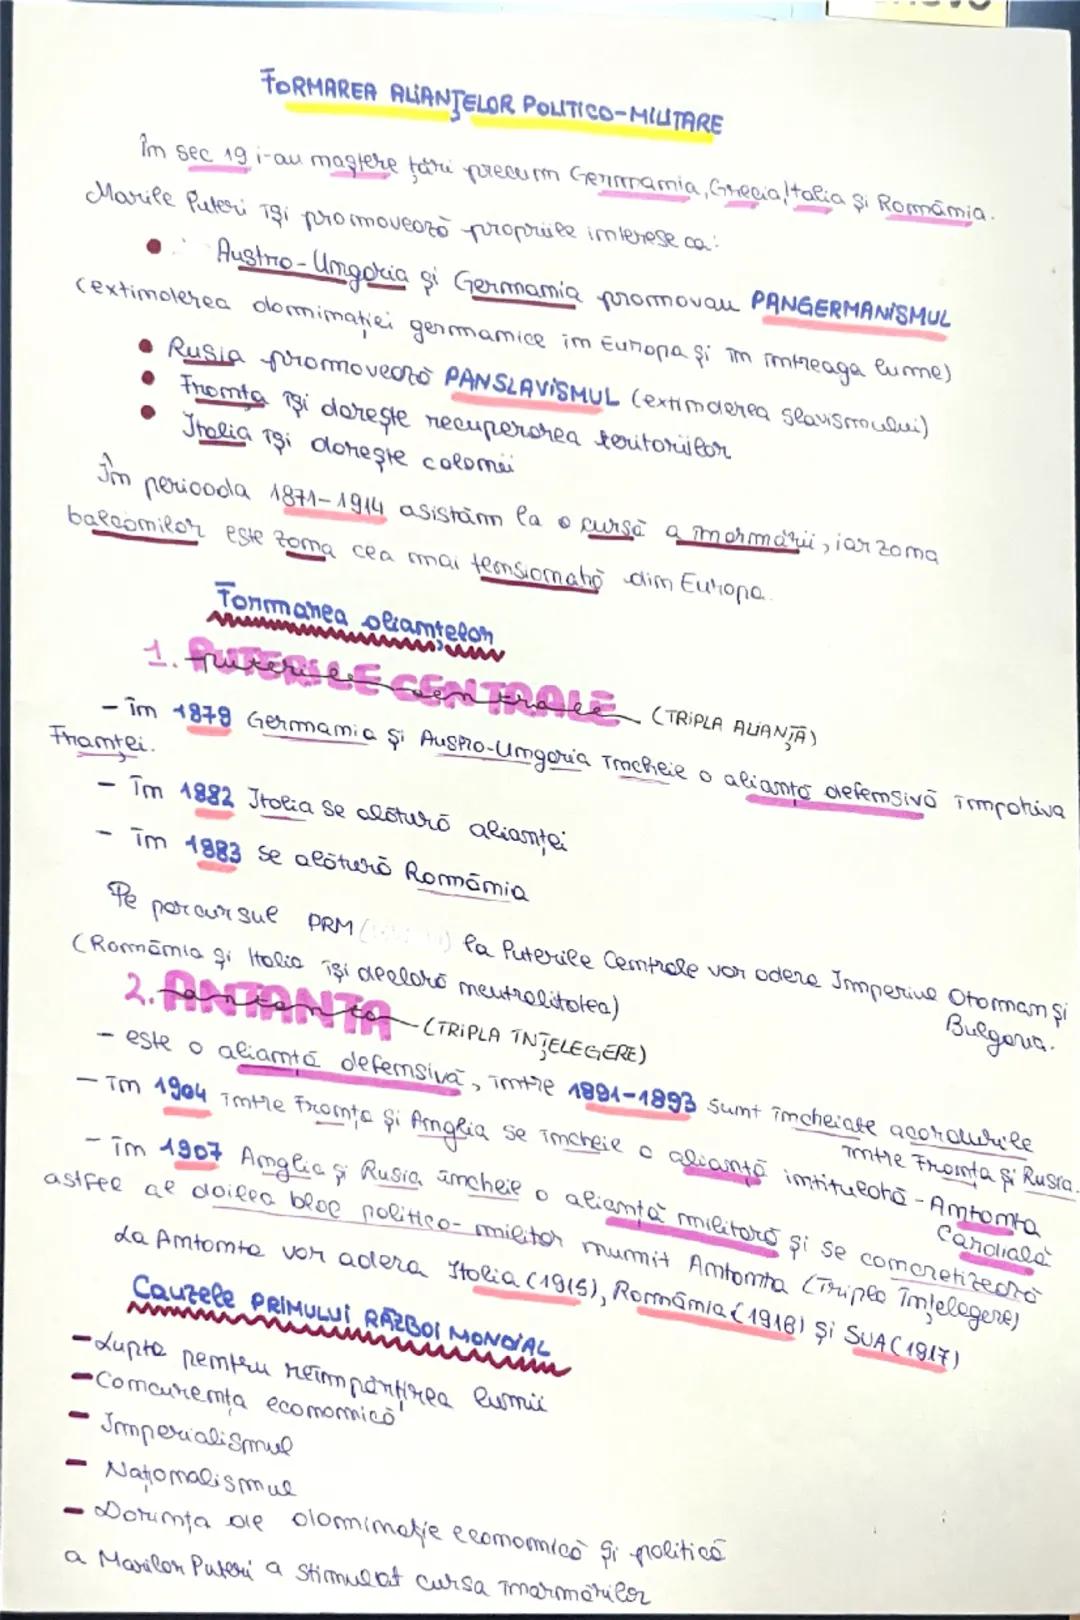 FORMAREA ALIANȚELOR POLITICO-MILITARE
În sec 19 i-au naștere țări precum Germania, Grecia, Italia și România.
Marile Puteri își promovează propriile interese ca:
• Austro-Ungaria și Germania promovau PANGERMANISMUL
(extinderea dominației germanice în Europa și în întreaga lume)
• Rusia promovează PANSLAVISMUL (extinderea slavismului)
• Franța își dorește recuperarea teritoriilor
• Italia își dorește colonii
În perioada 1871-1914 asistăm la o cursă a înarmării, iar zona
balcanilor este zona cea mai tensionată din Europa.
Formarea alianțelor
1. PUTERILE CENTRALE (TRIPLA ALIANȚĂ)
- în 1879 Germania și Austro-Ungaria încheie o alianță defensivă împotriva
Franței.
- În 1882 Italia se alătură alianței
- în 1883 se alătură România
Pe parcursul PRM la Puterile Centrale vor adera Imperiul Otoman și
Bulgaria.
(România și Italia își declară neutralitatea)
2. ANTANTA (TRIPLA ÎNȚELEGERE)
- este o alianță defensivă, între 1891-1893 sunt încheiate acordurile
între Franța și Rusia.
- în 1904 între Franța și Anglia se încheie o alianță intitulată - Antanta
Cardială
- În 1907 Anglia și Rusia încheie o alianță militară și se concretizează
astfel al doilea bloc politico-militar numit Antanta (Tripla Înțelegere)
La Antanta vor adera Italia (1915), România (1916) și SUA (1917)
Cauzele PRIMULUI RĂZBOI MONDIAL
- Lupta pentru reîmpărțirea lumii
- Concurența economică
- Imperialismul
- Naționalismul
- Dorința de dominație economică și politică
a Marilor Puteri a stimulat cursa înarmărilor